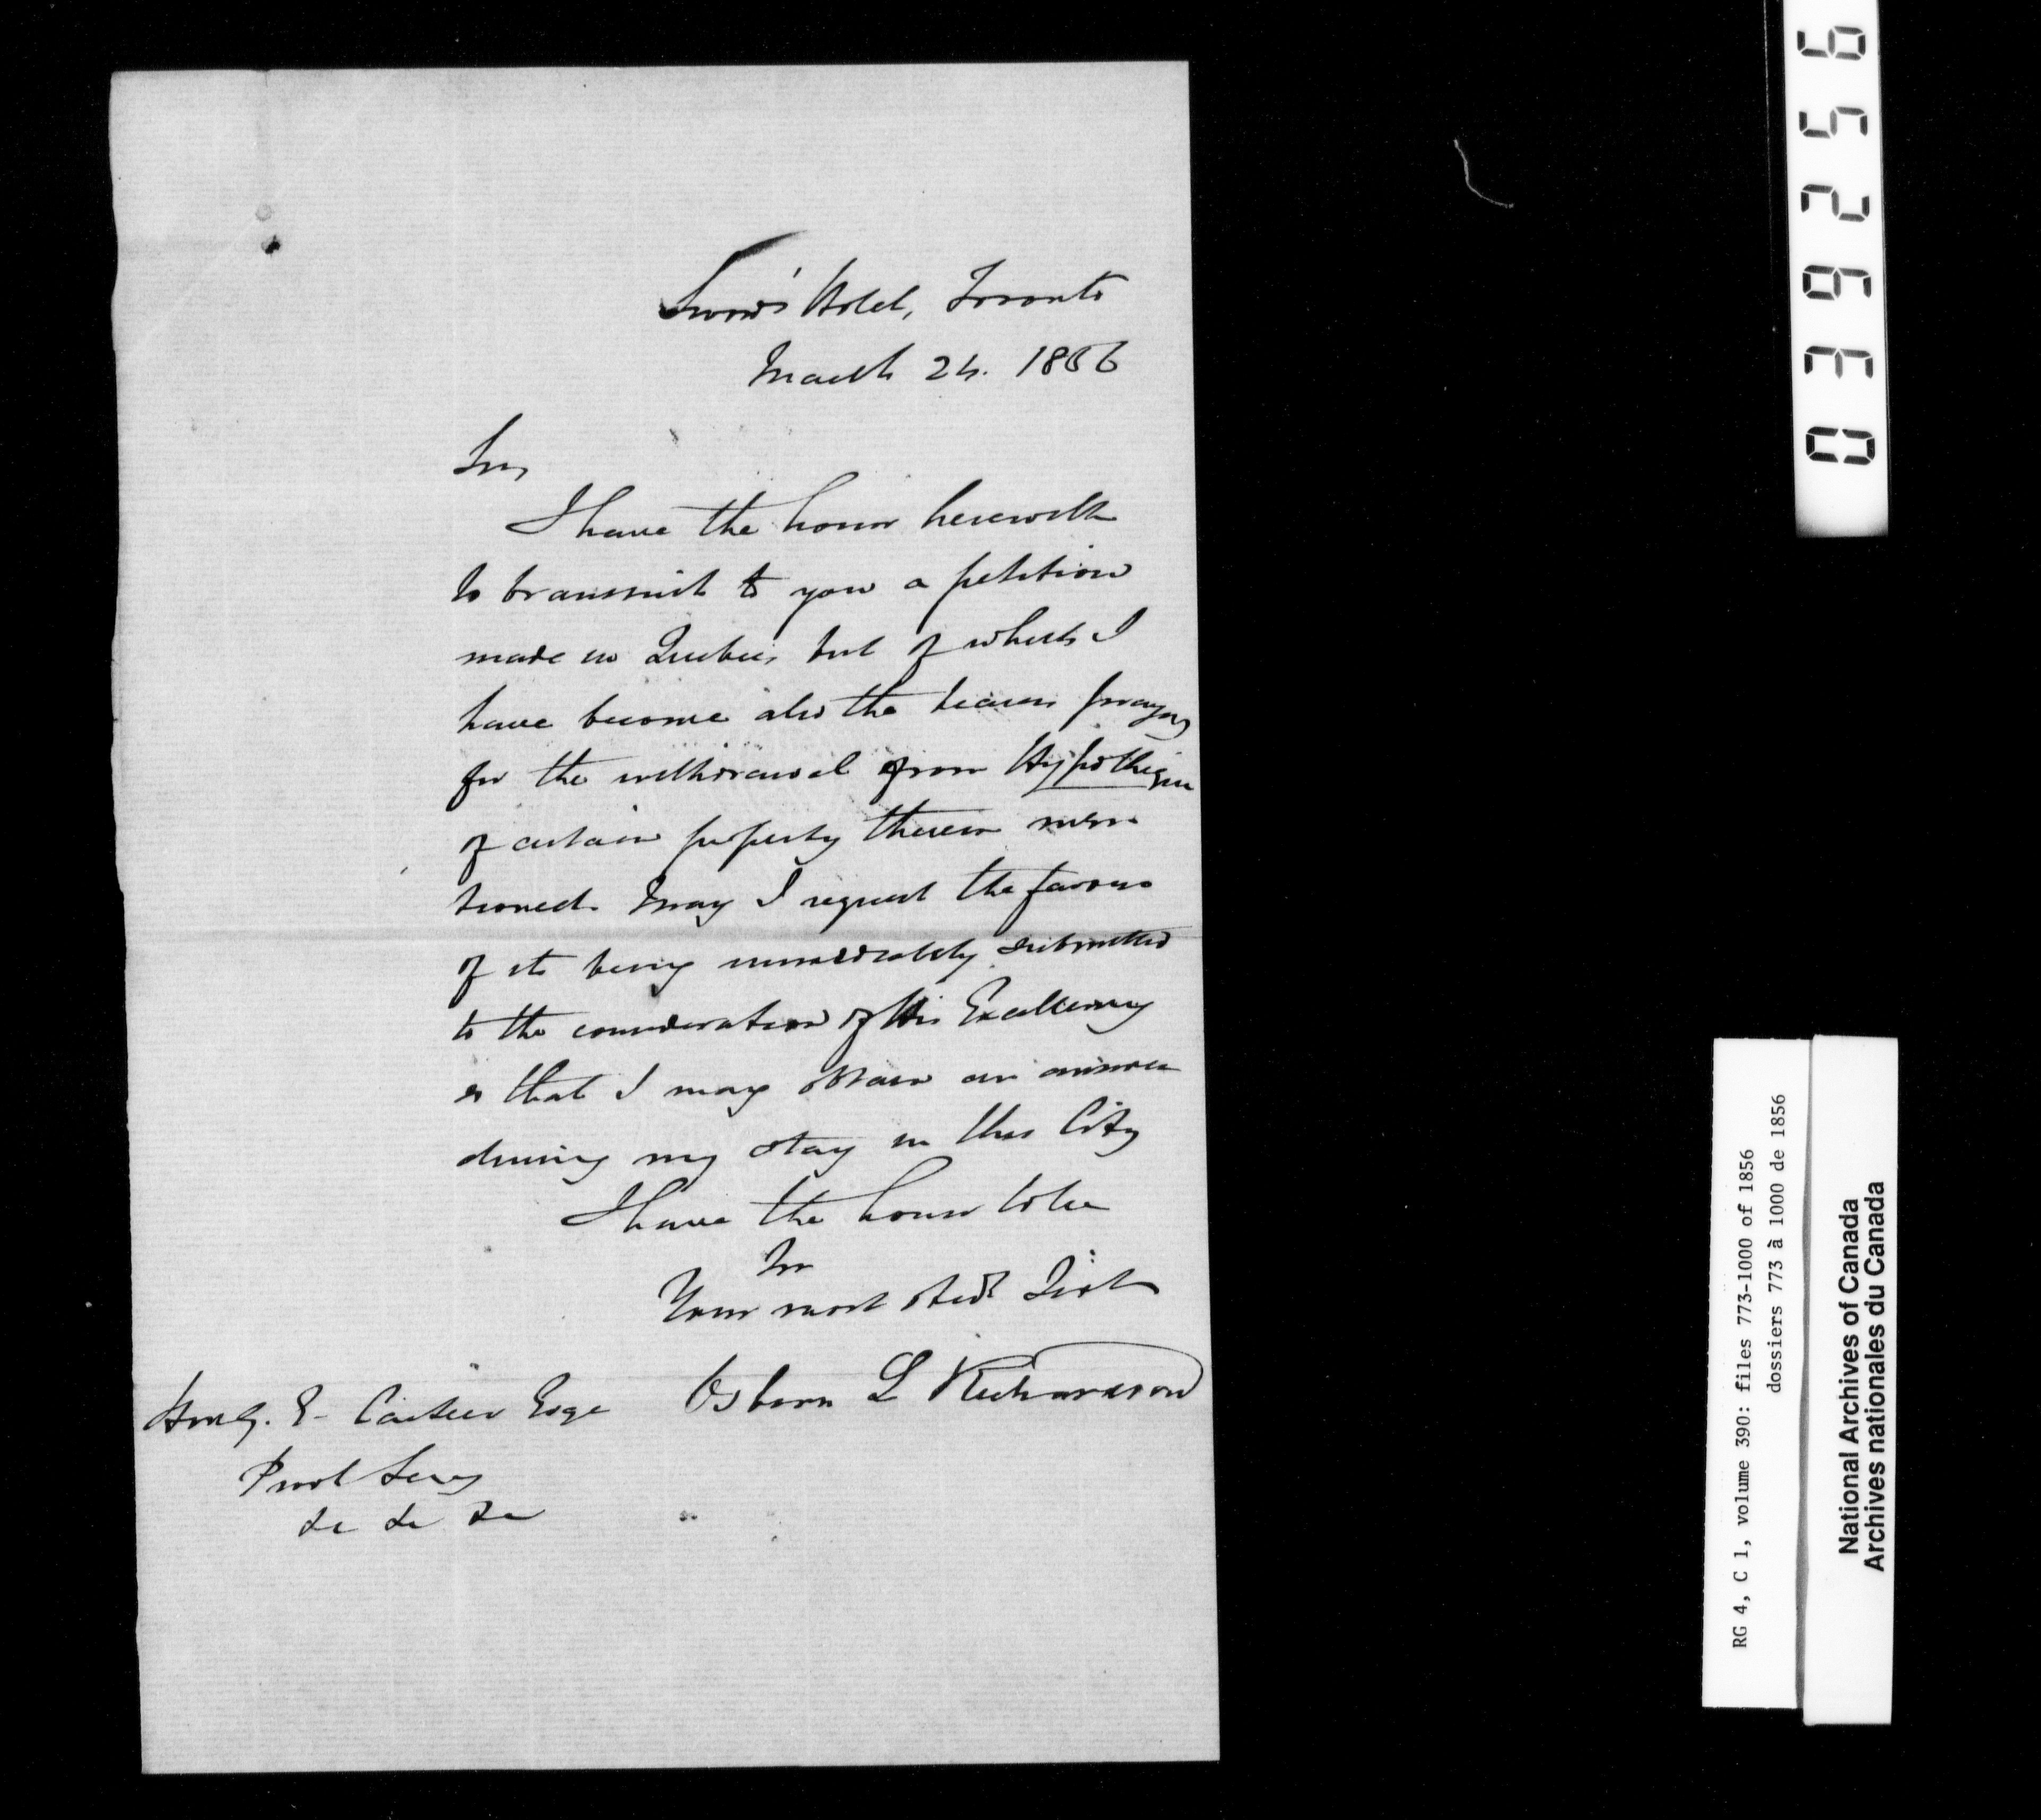 Sword's Hotel, Toronto
March 24. 1856
Sir,
I have the honor herewith
to transmit to you a petition
made in Quebec, but of which I
have become also the bearer praying
for the withdrawal from Hypothèque
of certain property therein men
tioned. May I request the favour
of its being immediately submitted
to the consideration of His Excellency
so that I may obtain an answer
during my stay in this City
I have the honor to be
Sir
Your most obedt Servt
Osborn L Richardson
Honl G. E. Cartier Esqe
Provl Secy
&c &c &c
039256
RG 4, C 1, volume 390: files 773-1000 of 1856
dossiers 773 à 1000 de 1856
National Archives of Canada
Archives nationales du Canada